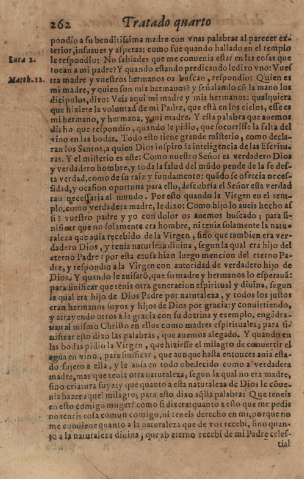 262 Tratado quarto
pondio a su benditissima madre con vnas palabras al parecer ex
terior, insuaues y asperas: como fue quando hallado en el templo
Luca 2. le respondio: No sabiades que me conuenia estar en las cosas que
tocan a mi padre? Y quando estando predicando le dixo vno: Vues
Matth. 12. tra madre y vuestros hermanos os buscan, respondio: Quien es
mi madre, y quien son mis hermanos? y señalando cõ la mano los
dicipulos, dixo: Veis aqui mi madre y mis hermanos: qualquiera
que hiziere la voluntad de mi Padre, que està en los cielos, esse es
mi hermano, y hermana, y mi madre. Y esta palabra que auemos
dicho que respondio, quando le pidio, que socorriesse la falta del
vino en las bodas. Todo esto tiene grande misterio, como decla-
ran los Santos, a quien Dios inspiro la inteligencia de las Escritu-
ras. Y el misterio es este: Como nuestro Señor es verdadero Dios
y verdadero hombre, y toda la salud del mũdo pende de la fe des-
ta verdad, como de su raiz y fundamento: quãdo se ofrecia neces-
sidad, y ocasion oportuna para ello, descubria el Señor esta verdad
tan necessaria al mundo. Por esto quando la Virgen en el tem-
plo, como verdadera madre, le dixo: Como hijo lo aueis hecho as
si? vuestro padre y yo con dolor os auemos buscado; para si-
nificar que no solamente era hombre, ni tenia solamente la natu-
raleza que auia recebido de la Virgen, sino que tambien era ver-
dadero Dios, y tenia naturaleza diuina, segun la qual era hijo del
eterno Padre: por esta causa hizo luego mencion del eterno Pa-
dre, y respondio a la Virgen con autoridad de verdadero hijo de
Dios. Y quando le auisarõ, que su madre y hermanos lo esperauã:
para sinificar que tenia otra generacion espiritual y diuina, segun
la qual era hijo de Dios Padre por naturaleza, y todos los justos
eran hermanos suyos y hijos de Dios por gracia; y conuirtiendo,
y atrayendo otros a la gracia con su dotrina y exemplo, engẽdra-
uan al mismo Christo en ellos como madres espirituales; para si-
nificar esto dixo las palabras, que auemos alegado. Y quando en
las bodas pidio la Virgen, que hiziesse el milagro de conuertir el
agua en vino, para sinificar, que aunque hasta entonces auia esta-
do sujeto a ella, y le auia en todo obedecido como a verdadera
madre, mas que tenia otra naturaleza, segun la qual no era madre,
sino criatura suya; y que quanto a esta naturaleza de Dios le cõue-
nia hazer aquel milagro; para esto dixo aq̃llas palabras: Que teneis
en esto comigo muger? como si dixera: quanto a esto que me pedis
no teneis cosa comun comigo, ni teneis derecho en mi, porque no
me conuiene quanto a la naturaleza que de vos recebi, sino quan-
to a la naturaleza diuina, que ab eterno recebi de mi Padre celes-
tial